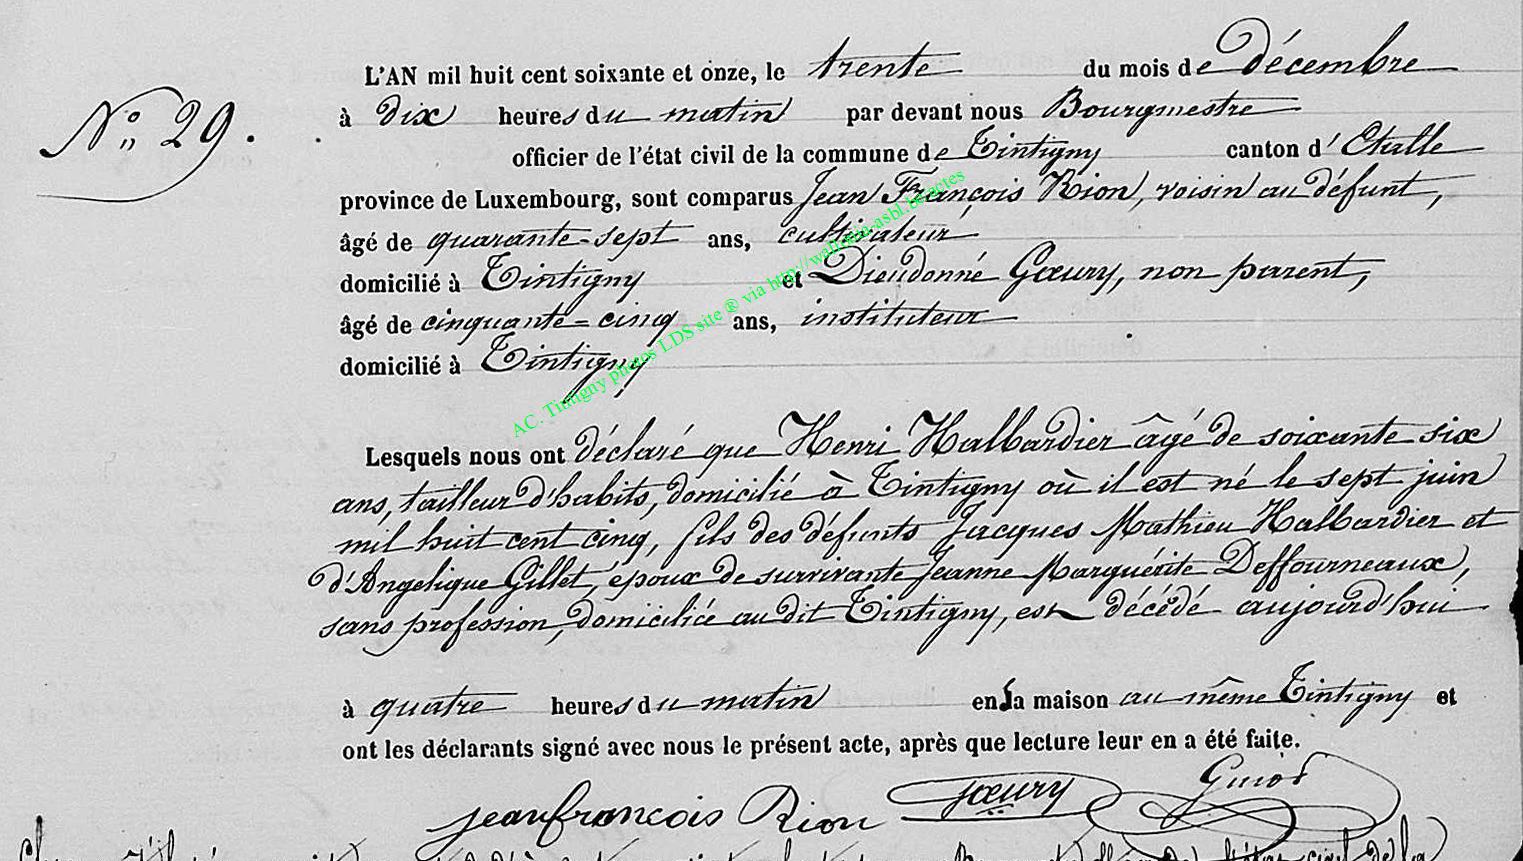 L'AN mil huit cent soixante et onze, le trente du mois de décembre
N° 29. à dix heures du matin par devant nous Bourgmestre
officier de l'état civil de la commune de Tintigny canton d'Etalle
province de Luxembourg, sont comparus Jean François Rion, voisin au défunt,
âgé de quarante-sept ans, cultivateur
domicilié à Tintigny et Dieudonné Gœury, non parent,
âgé de cinquante=cinq ans, instituteur
domicilié à Tintigny
AC. Tintigny photos LDS site ® via http://wallonia-asbl.be/actes
Lesquels nous ont déclaré que Henri Halbardier âgé de soixante six
ans, tailleur d'habits, domicilié à Tintigny où il est né le sept juin
mil huit cent cinq, fils des défunts Jacques Mathieu Halbardier et
d'Angelique Gillet, époux de survivante Jeanne Marguérite Deffourneaux,
sans profession, domiciliée au dit Tintigny, est décédé aujourd'hui
à quatre heures du matin en sa maison au même Tintigny et
ont les déclarants signé avec nous le présent acte, après que lecture leur en a été faite.
jeanfrancois Rion Gœury Guiot